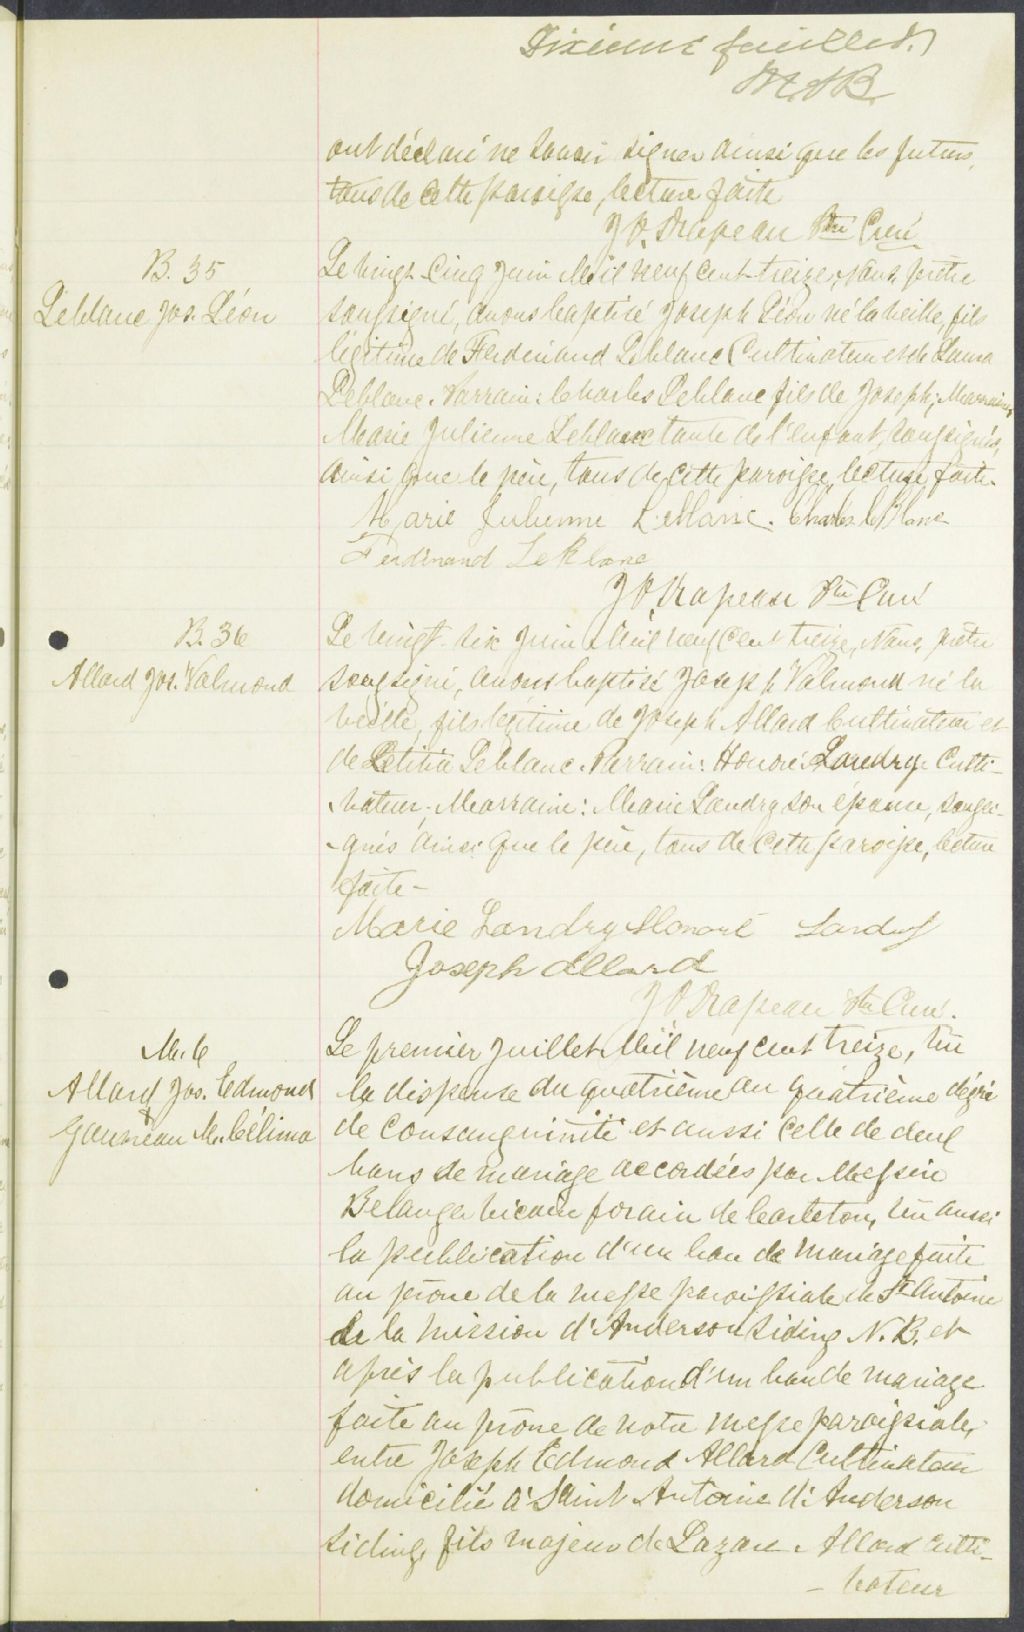 Dixième feuillet.
ont déclaré ne savoir signer ainsi que les futurs,
tous de cette paroisse, lecture faite
J. O. Drapeau Ptre Curé
B. 35
Leblanc Jos. Léon
Le vingt cinq juin Mil neuf cent treize, nous, prêtre
soussigné, avons baptisé Joseph Léon né la veille, fils
légitime de Ferdinand Leblanc Cultivateur et de Laura
Leblanc. Parrain: Charles Leblanc fils de Joseph; Marraine,
Marie Julienne Leblanc tante de l'enfant, soussignés,
ainsi que le père, tous de cette paroisse, lecture faite.
Marie Julienne LeBlanc. Charles leBlanc
Ferdinand LeBlanc
J. O. Drapeau Ptre Curé
B. 36
Allard Jos. Valmond
Le vingt-six juin Mil neuf cent treize, Nous, prêtre
soussigné, avons baptisé Joseph Valmond né la
veille, fils légitime de Joseph Allard Cultivateur et
de Létitia Leblanc. Parrain: Honoré Landry Culti-
vateur; Marraine: Marie Landry son épouse, soussi-
-gnés ainsi que le père, tous de cette paroisse, lecture
faite-
Marie Landry Honoré Landry
Joseph Allard
J O Drapeau Ptre Curé.
M. 6
Allard Jos. Edmond
&
Gauvreau M. Célima
Le premier juillet Mil neuf cent treize, Vu
la dispense du quatrième au quatrième dégré
de consanguinité et aussi celle de deux
bans de mariage accordées par Messire
Belanger vicaire forain de Carleton, vu aussi
la publication d'un ban de mariage faite
au prône de la messe paroissiale de St Antoine
de la mission d'Anderson Siding N.B. et
après la publication d'un ban de mariage
faite au prône de notre messe paroissiale,
entre Joseph Edmond Allard Cultivateur
domicilié à Saint Antoine d'Anderson
Siding, fils majeur de Lazare Allard culti-
- vateur